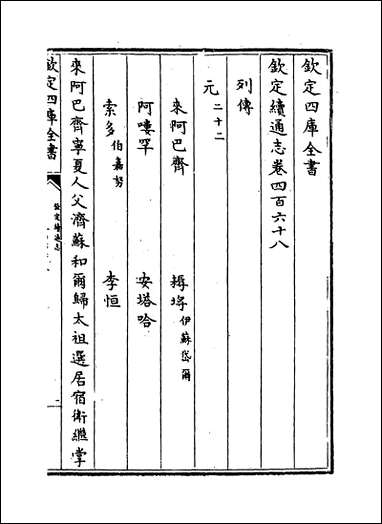 欽定四庫全書
欽定續通志卷四百六十八
列傳
元二十二
來阿巴齊 搙埒伊蘇岱爾
阿嘍罕 安塔哈
索多伯嘉努 李恒
來阿巴齊寧夏人父濟蘇和爾歸太祖選居宿衛繼掌
欽定四庫全書
欽定續通志